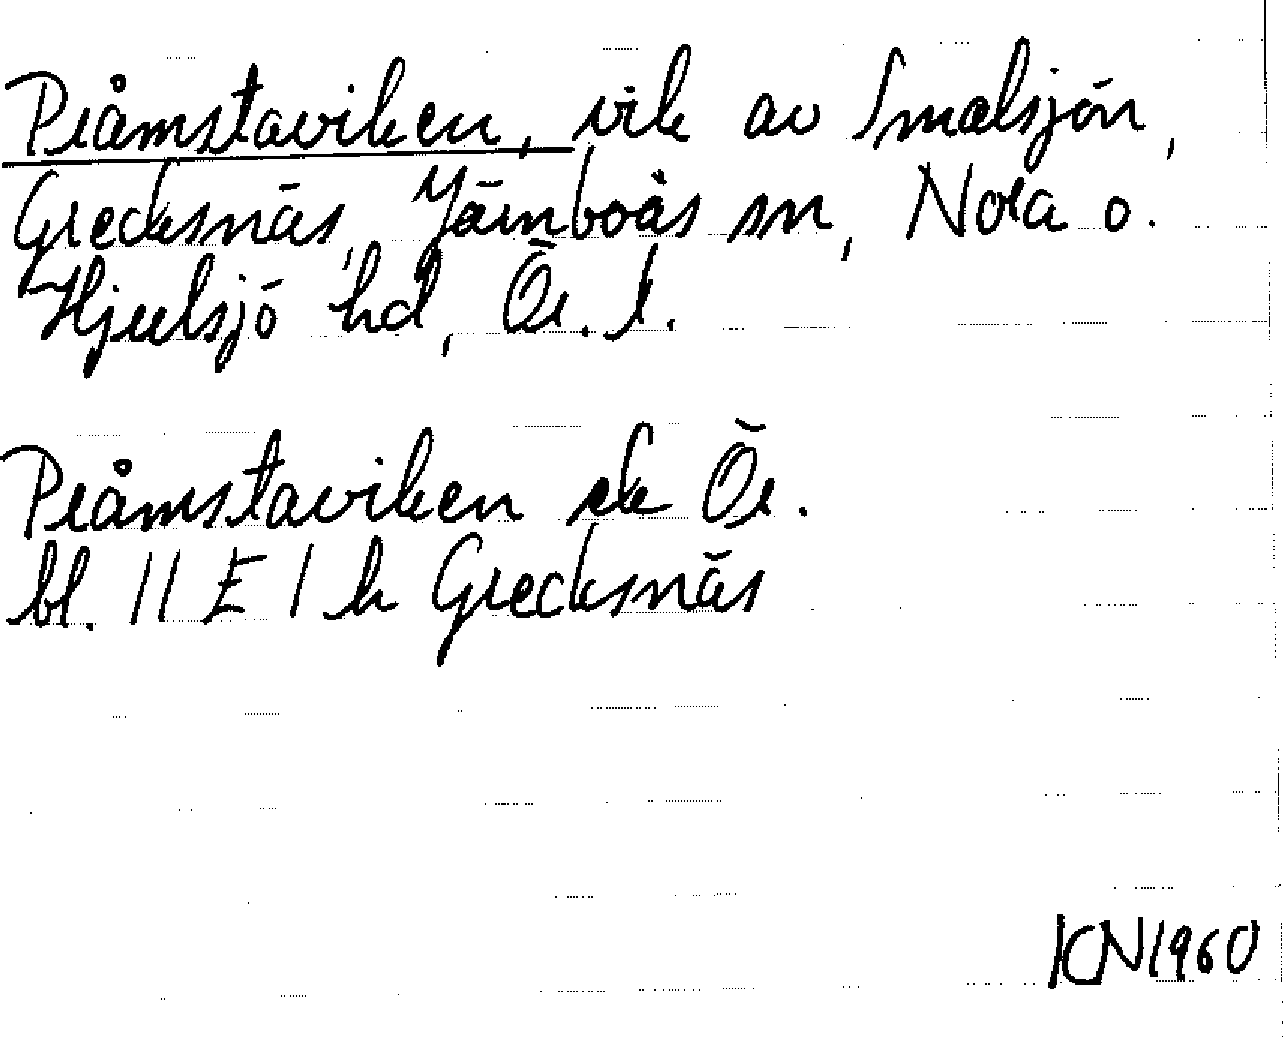 Pråmstaviken, vik av Smalsjön,
Grecksnäs, Järnboås sn, Nora o.
Hjulsjö hd, Ör. l.
Pråmstaviken ek Ör.
bl. 11 E 1 h Grecksnäs
KN 1960